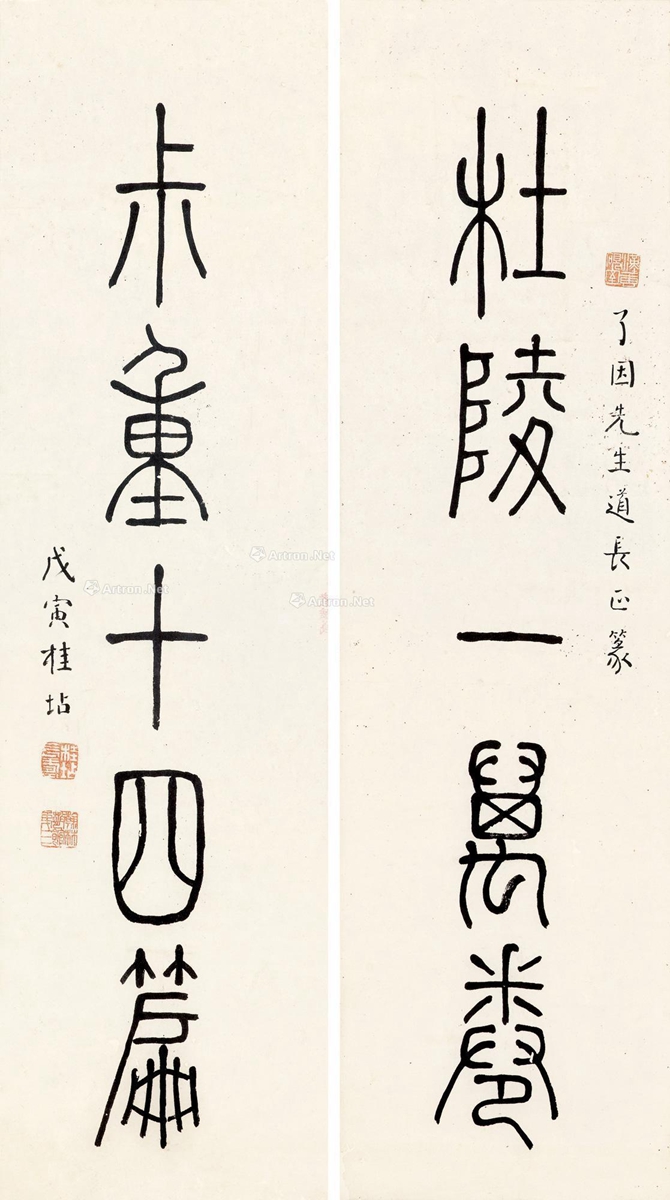 了因先生道長正篆
杜陵一萬卷
尗重十四篇
戊寅桂坫
Artron.Net
Artron.Net
Artron.Net